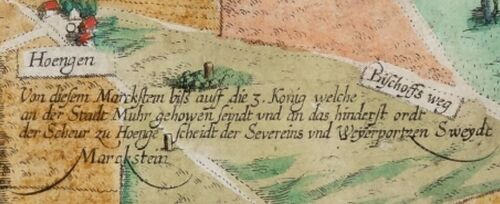 Hoengen
Bischoffs weg
Von diesem Marckstein biss auff die 3. Konig welche
an der Stadt Muhr gehowen seindt vnd an das hinderst ordt
der Scheur zu Hoenge scheidt der Severeins vnd Weyerportzen Sweydt
Marckstein